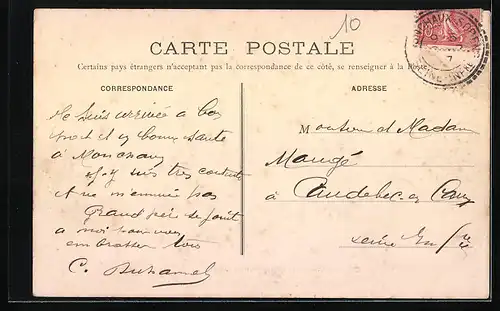 10
CARTE POSTALE
Certains pays étrangers n'acceptant pas la correspondance de ce côté, se renseigner à la Poste
CORRESPONDANCE
ADRESSE
Je suis arrivée a bon
port et en bonne santé
à Monchaux
j'y suis très contente
et ne m'ennuie pas
Grand père se joint
a moi pour vous
embrasser tous
C. Duhamel
Monsieur et Madame
Maugé
à Caudebec en Caux
Seine Infre